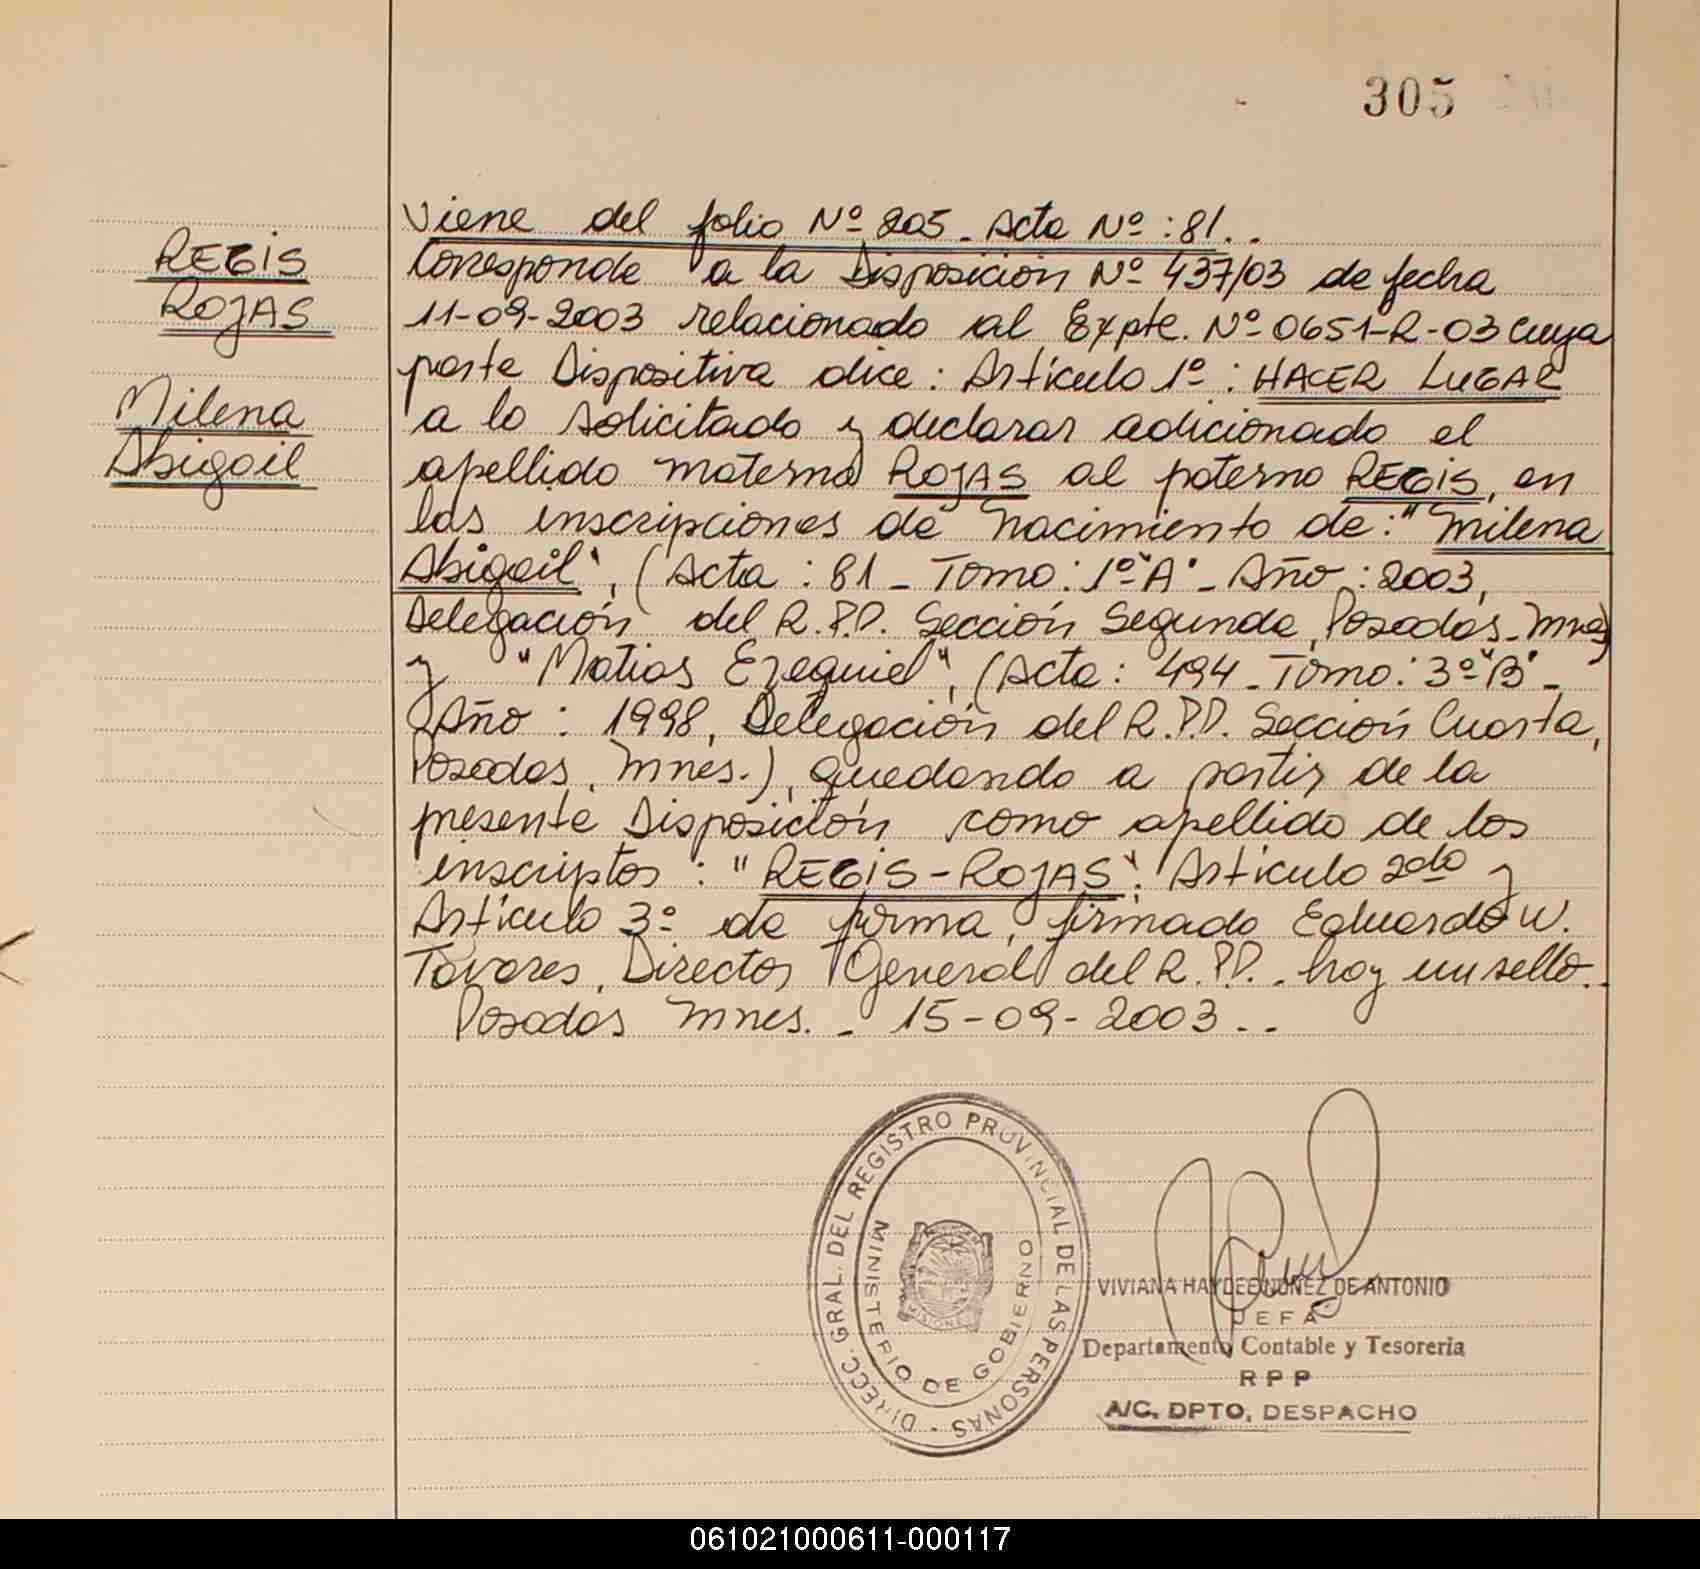 305
REGIS
ROJAS
Milena
Abigail
Viene del folio Nº 205 - Acta Nº : 81. -
Corresponde a la Disposición Nº 437/03 de fecha
11-09-2003 relacionado al Expte. Nº 0651-R-03 cuya
parte Dispositiva dice : Artículo 1º : HACER LUGAR
a lo solicitado y declarar adicionado el
apellido materno ROJAS al paterno REGIS, en
las inscripciones de nacimiento de : "Milena
Abigail", (Acta : 81 - Tomo : 1º "A" - Año : 2003,
Delegación del R.P.P. Sección Segunda, Posadas - Mnes)
y "Matias Ezequiel", (Acta : 494 - Tomo : 3º "B" -
Año : 1998, Delegación del R.P.P. Sección Cuarta,
Posadas, Mnes.), quedando a partir de la
presente Disposición como apellido de los
inscriptos : "REGIS - ROJAS". Artículo 2do y
Artículo 3º de forma, firmado Eduardo W.
Tavares, Director General del R.P.P. - hay un sello. -
Posadas Mnes. - 15-09-2003. -
DIRECC. GRAL. DEL REGISTRO PROVINCIAL DE LAS PERSONAS -
MINISTERIO DE GOBIERNO
MISIONES
VIVIANA HAYDEE NUÑEZ DE ANTONIO
JEFA
Departamento Contable y Tesoreria
RPP
A/C. DPTO, DESPACHO
061021000611-000117